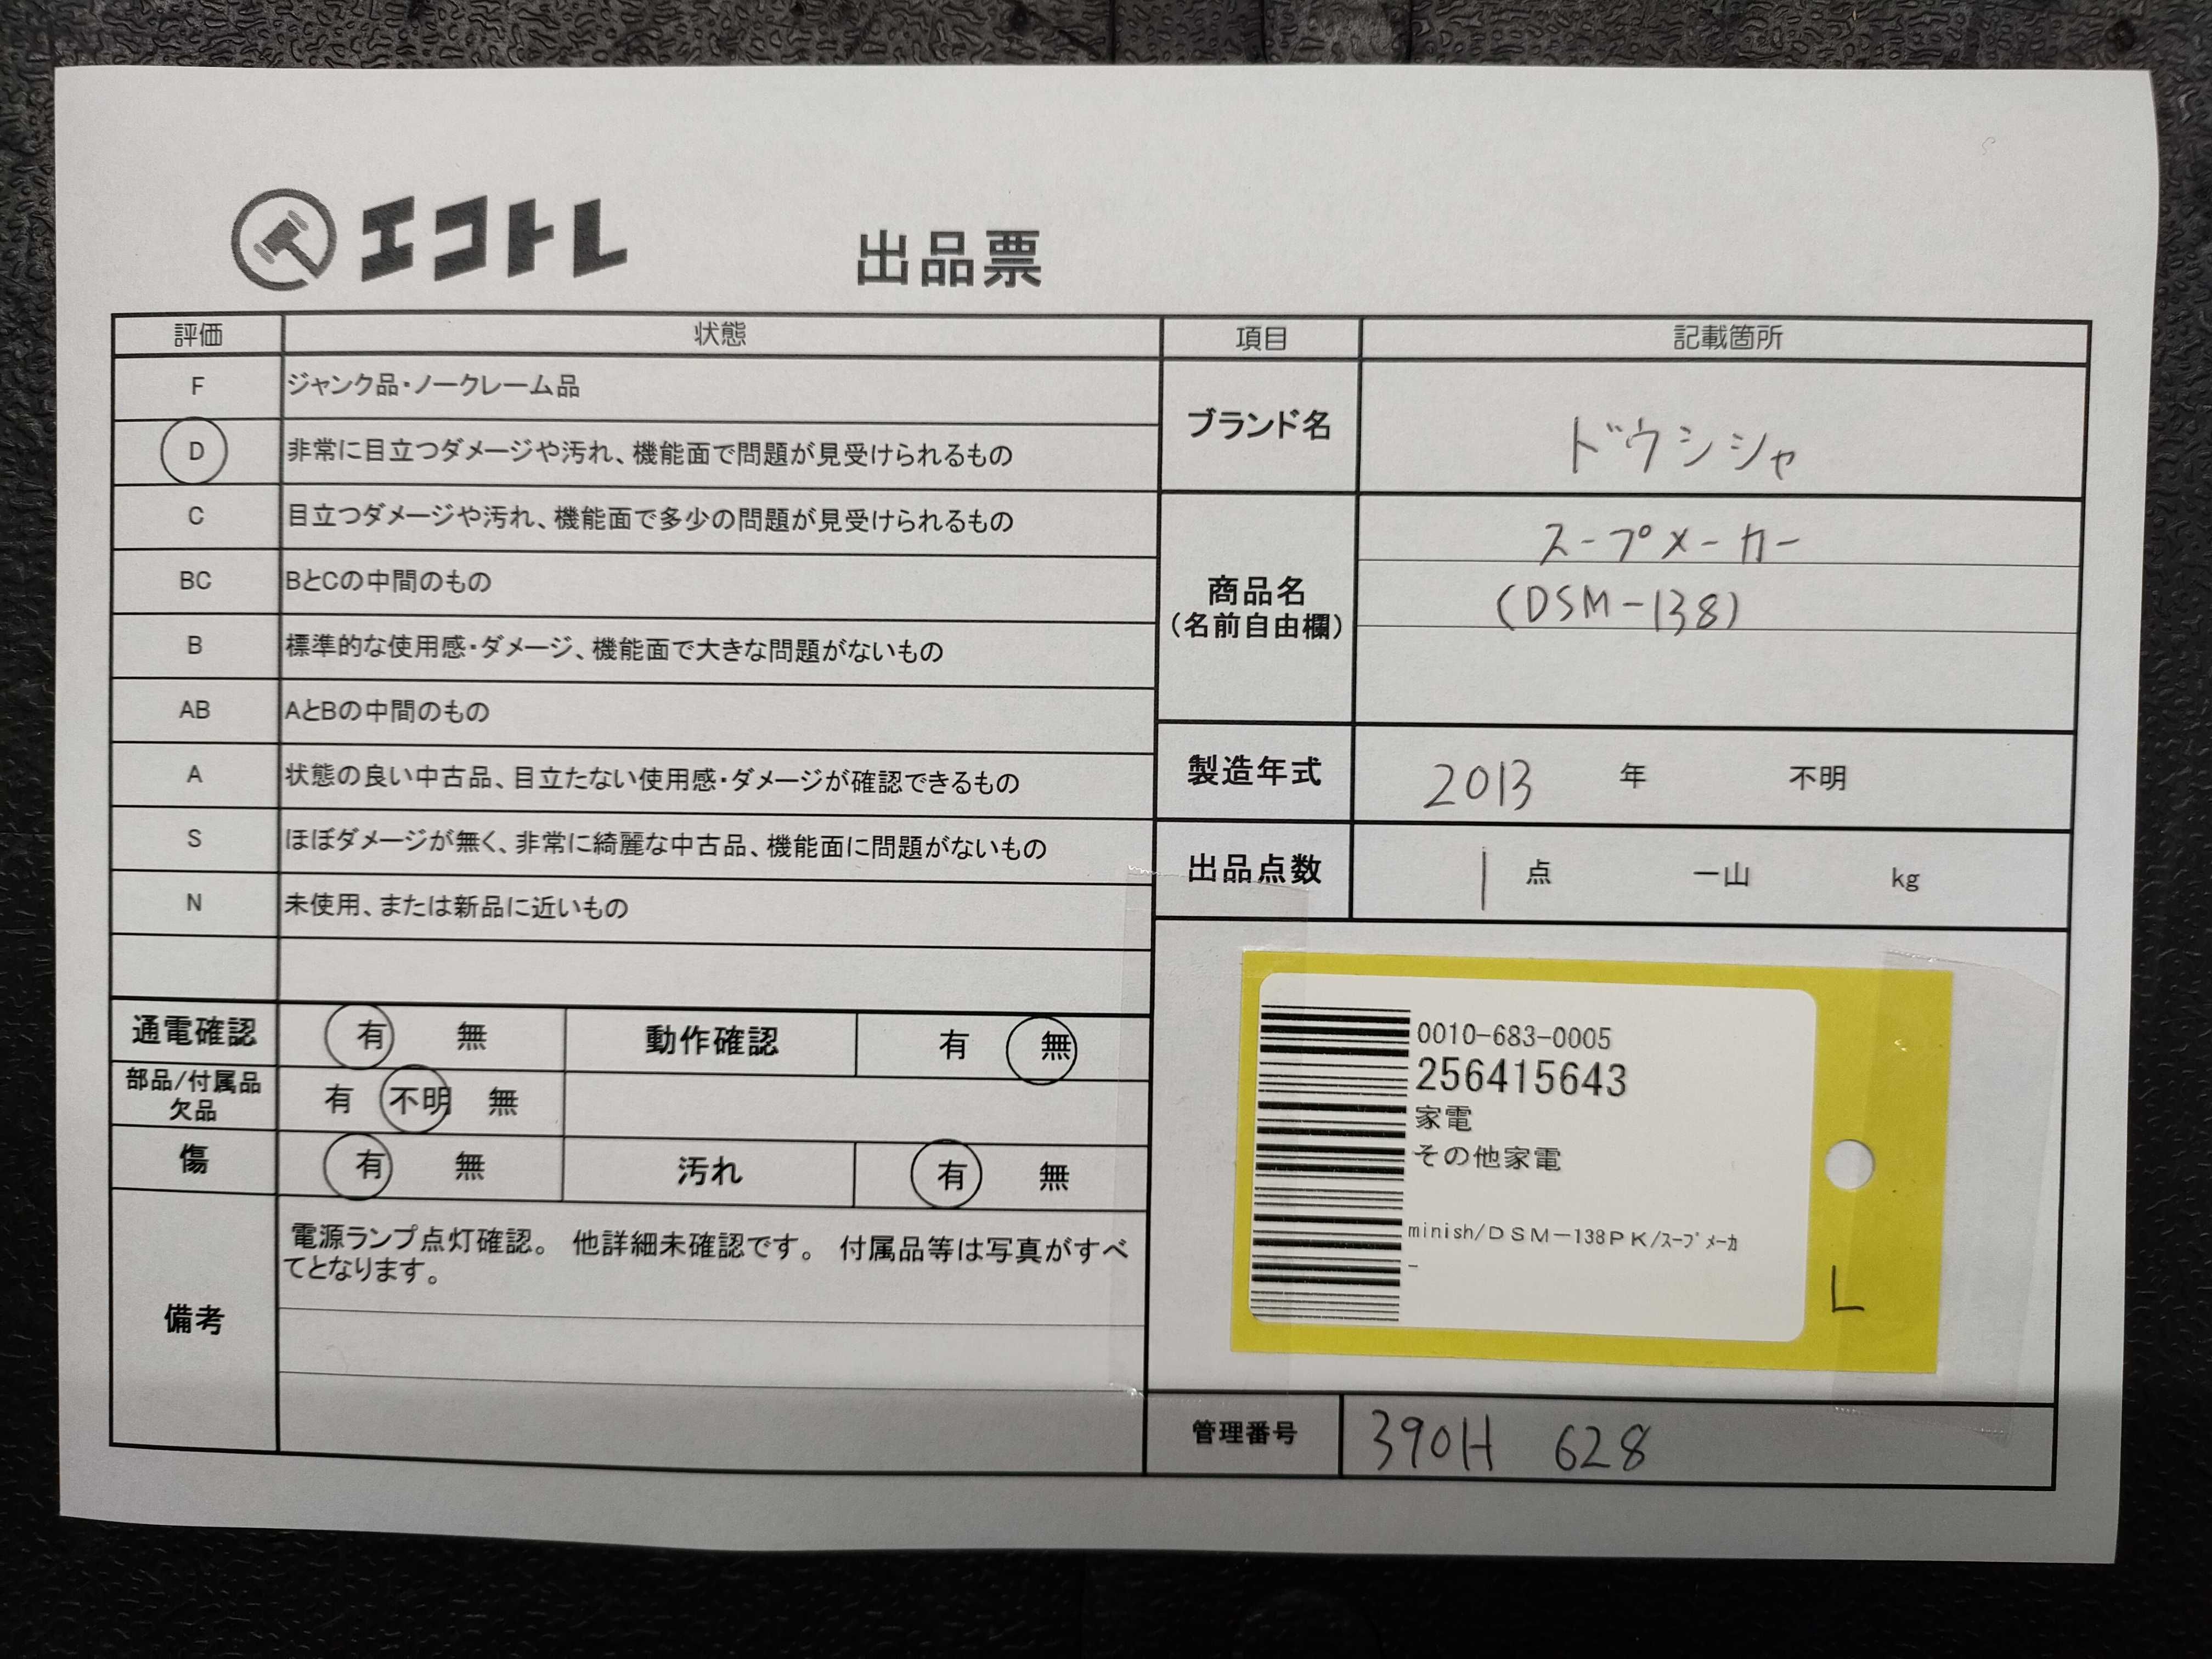 エコトレ
出品票
評価 状態
F ジャンク品・ノークレーム品
D 非常に目立つダメージや汚れ、機能面で問題が見受けられるもの
C 目立つダメージや汚れ、機能面で多少の問題が見受けられるもの
BC BとCの中間のもの
B 標準的な使用感・ダメージ、機能面で大きな問題がないもの
AB AとBの中間のもの
A 状態の良い中古品、目立たない使用感・ダメージが確認できるもの
S ほぼダメージが無く、非常に綺麗な中古品、機能面に問題がないもの
N 未使用、または新品に近いもの
通電確認 有 無 動作確認 有 無
部品/付属品
欠品
有 不明 無
傷 有 無 汚れ 有 無
備考
電源ランプ点灯確認。 他詳細未確認です。 付属品等は写真がすべ
てとなります。
項目 記載箇所
ブランド名 ドウシシャ
商品名
(名前自由欄)
スープメーカー
(DSM-138)
製造年式 2013 年 不明
出品点数 1 点 一山 kg
0010-683-0005
256415643
家電
その他家電
minish/DSM-138PK/ｽｰﾌﾟﾒｰｶ
-
L
管理番号 390H 628